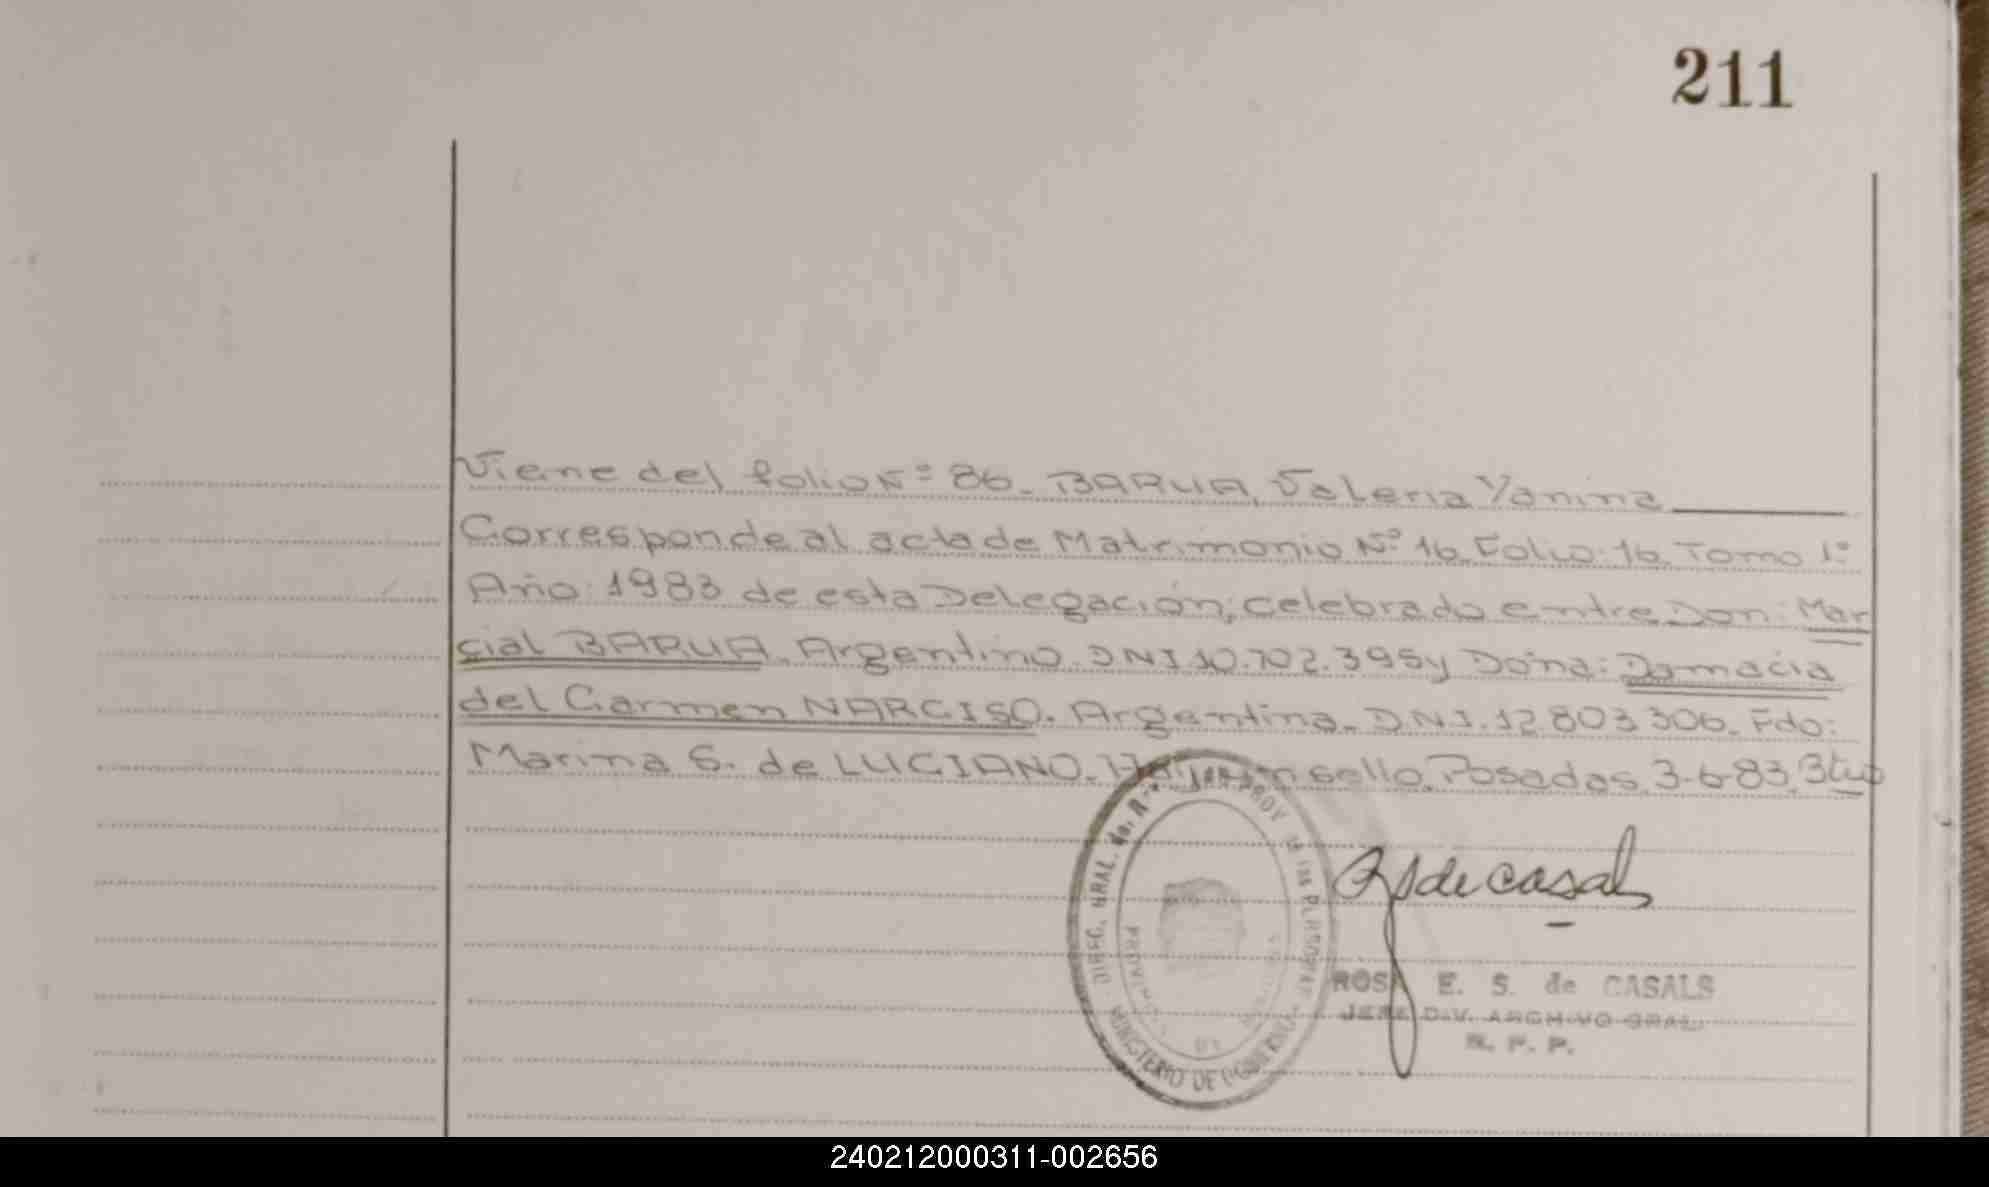 211
Viene del folio Nº 86. BARUA, Valeria Yanina
Corresponde al acta de Matrimonio Nº 16. Folio: 16. Tomo 1º
Año: 1983 de esta Delegación; celebrado entre Don: Mar
cial BARUA. Argentino. DNI 10.702.395 y Doña: Damacia
del Carmen NARCISO. Argentina. DNI. 12.803.306. Fdo:
Marina G. de LUCIANO. Hay un sello. Posadas, 3-6-83.
DIREC. GRAL. de PROV de las PERSONAS
MINISTERIO DE GOBIERNO
PROVINCIA
de casals
ROSA E. S. de CASALS
JEFE DIV. ARCHIVO GRAL.
R. P. P.
240212000311-002656